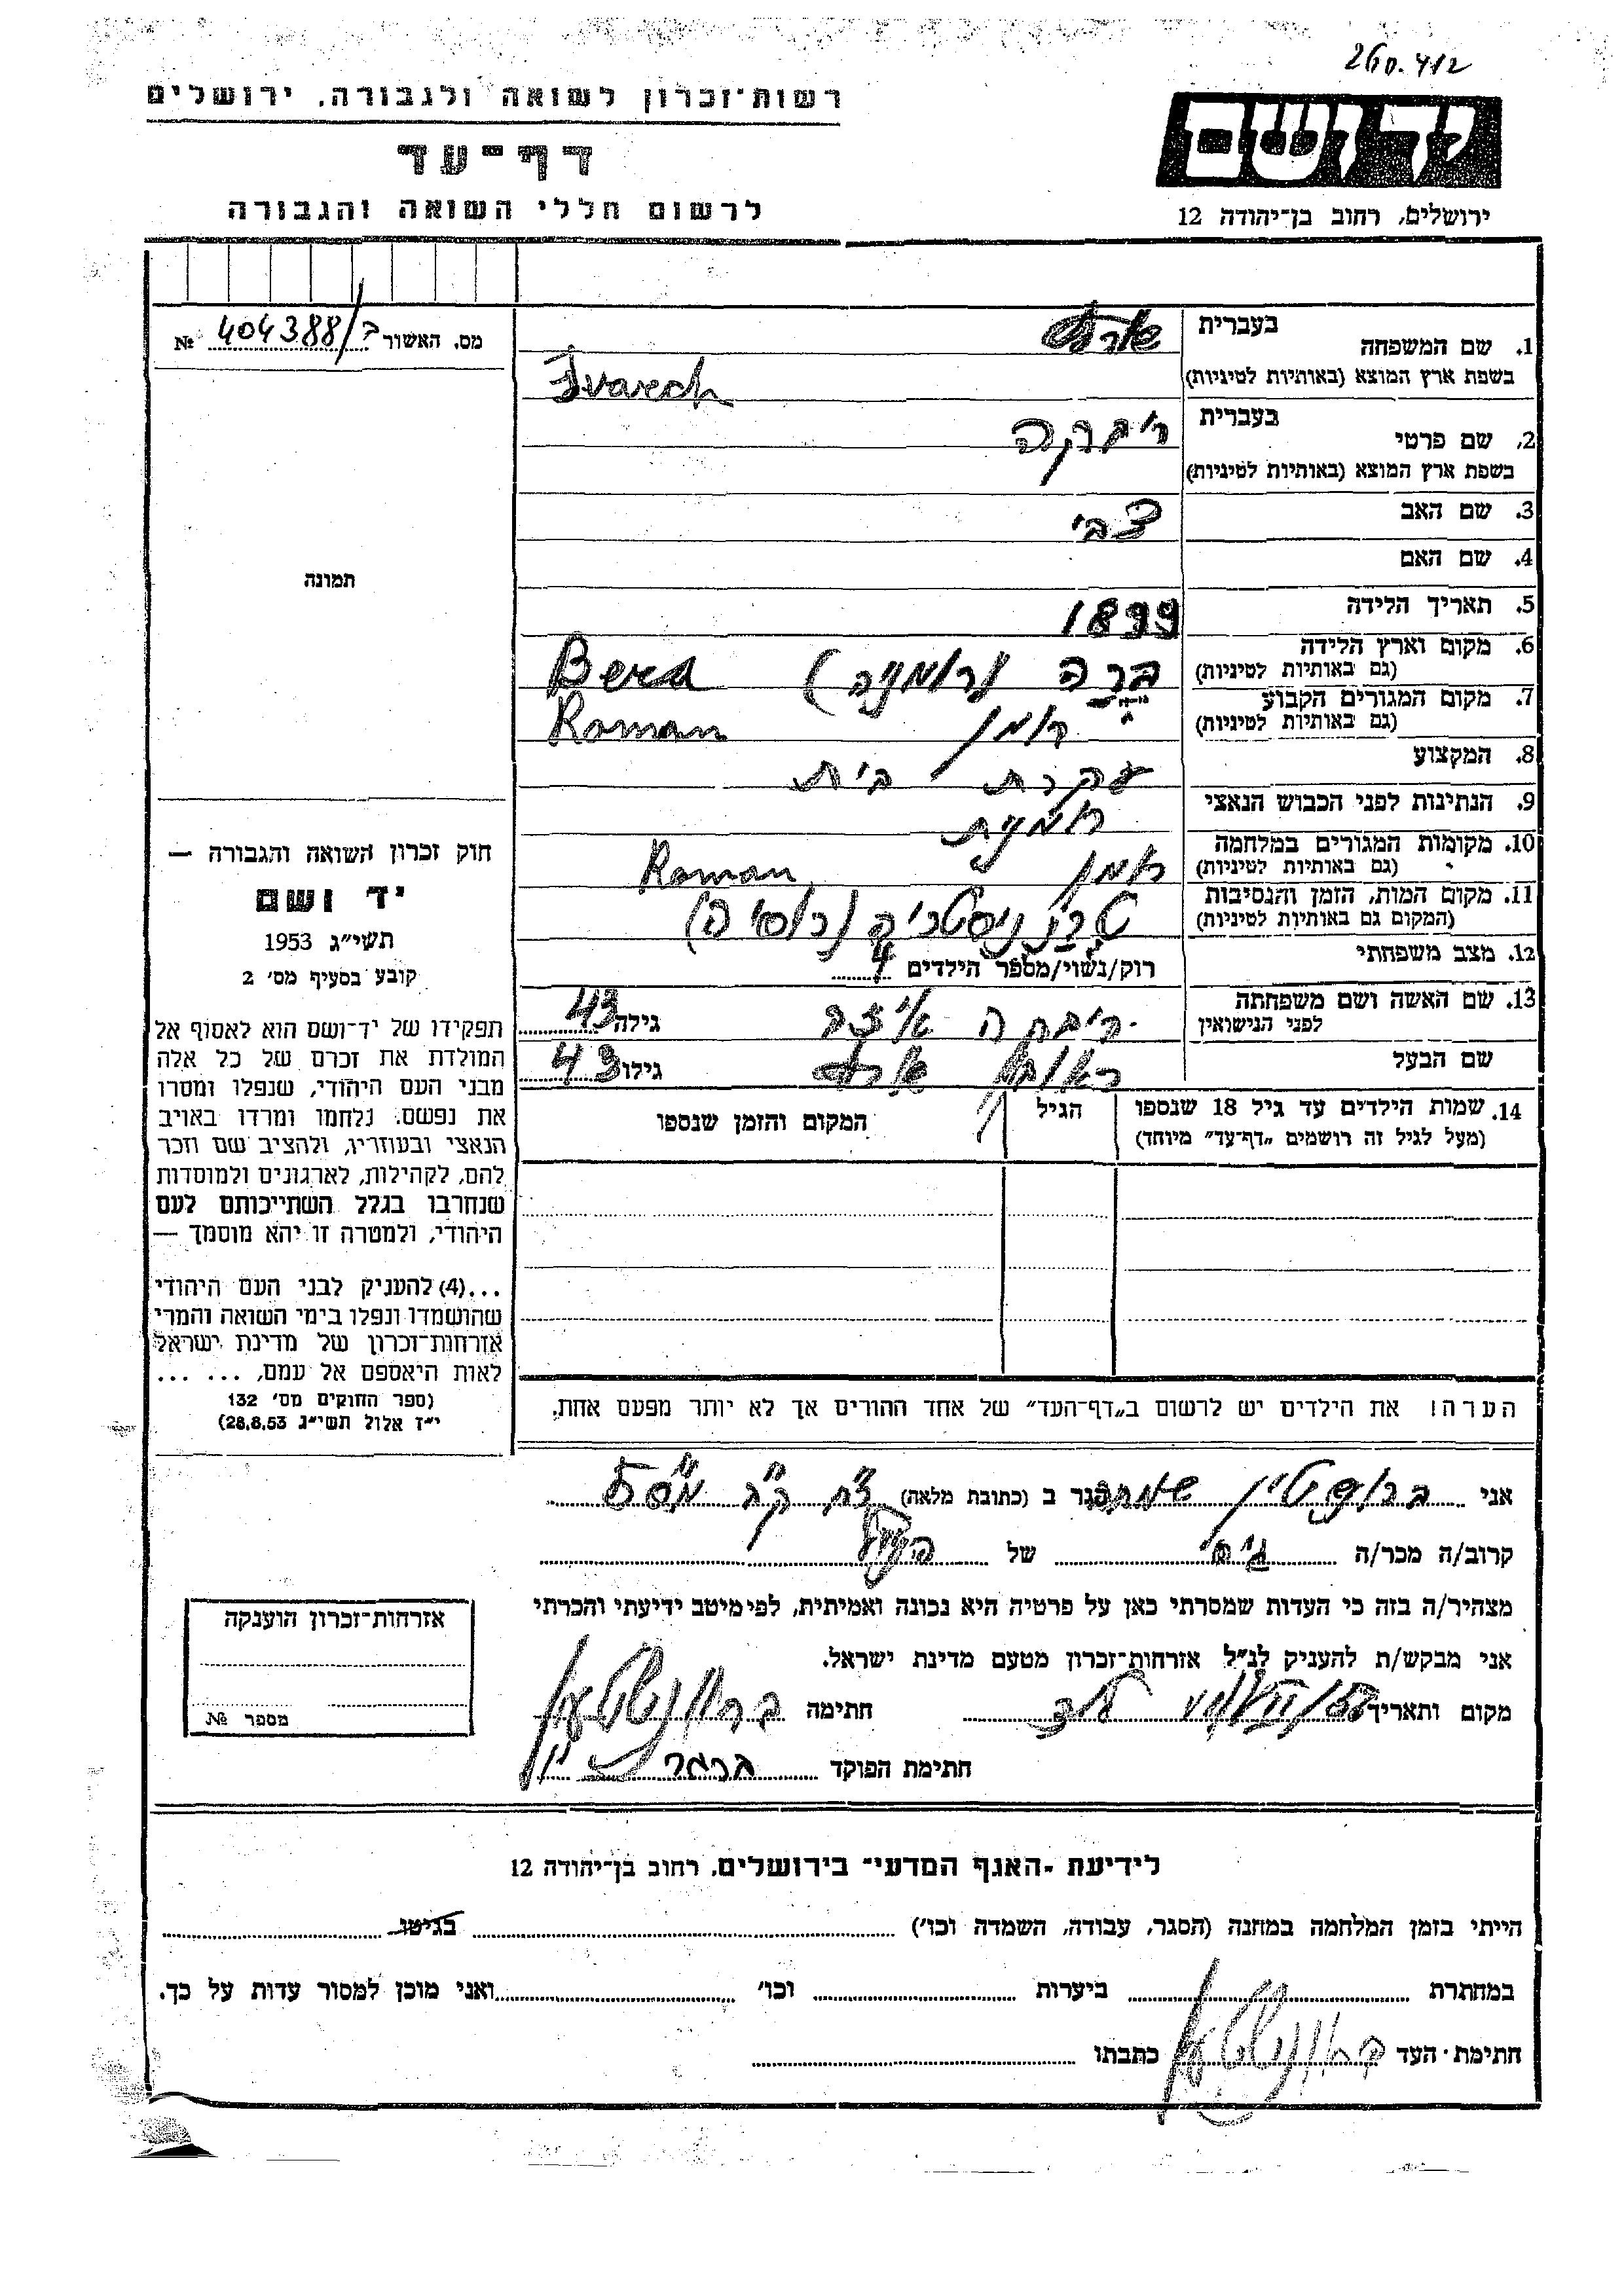 260.412
רשות־זכרון לשואה ולגבורה, ירושלים
דף־עד
לרשום חללי השואה והגבורה
ירושלים, רחוב בן־יהודה 12
מס. האשור ב/404388 №
תמונה
חוק זכרון השואה והגבורה —
יד ושם
תשי״ג 1953
קובע בסעיף מס׳ 2
תפקידו של יד־ושם הוא לאסוף אל
המולדת את זכרם של כל אלה
מבני העם היהודי, שנפלו ומסרו
את נפשם, נלחמו ומרדו באויב
הנאצי ובעוזריו, ולהציב שם וזכר
להם, לקהילות, לארגונים ולמוסדות
שנחרבו בגלל השתייכותם לעם
היהודי, ולמטרה זו יהא מוסמך —
...(4) להעניק לבני העם היהודי
שהושמדו ונפלו בימי השואה והמרי
אזרחות־זכרון של מדינת ישראל
לאות היאספם אל עמם, ... ...
(ספר החוקים מס׳ 132
י״ז אלול תשי״ג 28.8.53)
בעברית
1. שם המשפחה
בשפת ארץ המוצא (באותיות לטיניות)
בעברית
2. שם פרטי ריבקה
בשפת ארץ המוצא (באותיות לטיניות)
3. שם האב צבי
4. שם האם
5. תאריך הלידה 1899
6. מקום וארץ הלידה
(גם באותיות לטיניות) ברה (רומניה)
7. מקום המגורים הקבוע
(גם באותיות לטיניות) רומן Roman
8. המקצוע עקרת בית
9. הנתינות לפני הכבוש הנאצי רומנית
10. מקומות המגורים במלחמה
(גם באותיות לטיניות) רומן Roman
11. מקום המות, הזמן והנסיבות
(המקום גם באותיות לטיניות) טרנסניסטריה (רוסיה)
12. מצב משפחתי רוק/נשוי/מספר הילדים 4
13. שם האשה ושם משפחתה
לפני הנישואין ריבקה גילה 43
שם הבעל ראובן גילו 43
14. שמות הילדים עד גיל 18 שנספו
(מעל לגיל זה רושמים „דף־עד״ מיוחד)
הגיל
המקום והזמן שנספו
הערה! את הילדים יש לרשום ב„דף־העד״ של אחד ההורים אך לא יותר מפעם אחת.
אני ברונשטיין שמחה הגר ב (כתובת מלאה)
קרוב/ה מכר/ה של
מצהיר/ה בזה כי העדות שמסרתי כאן על פרטיה היא נכונה ואמיתית, לפי מיטב ידיעתי והכרתי
אני מבקש/ת להעניק לנ״ל אזרחות־זכרון מטעם מדינת ישראל.
מקום ותאריך חתימה ברונשטיין
חתימת הפוקד
אזרחות־זכרון הוענקה
מספר №
לידיעת ־האגף המדעי־ בירושלים, רחוב בן־יהודה 12
הייתי בזמן המלחמה במחנה (הסגר, עבודה, השמדה וכו׳) בגיטו
במחתרת ביערות וכו׳ ואני מוכן למסור עדות על כך.
חתימת העד ברונשטיין כתבתו